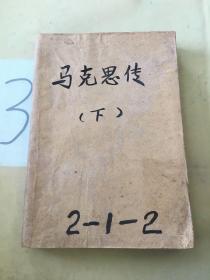 3
马克思传
(下)
2-1-2